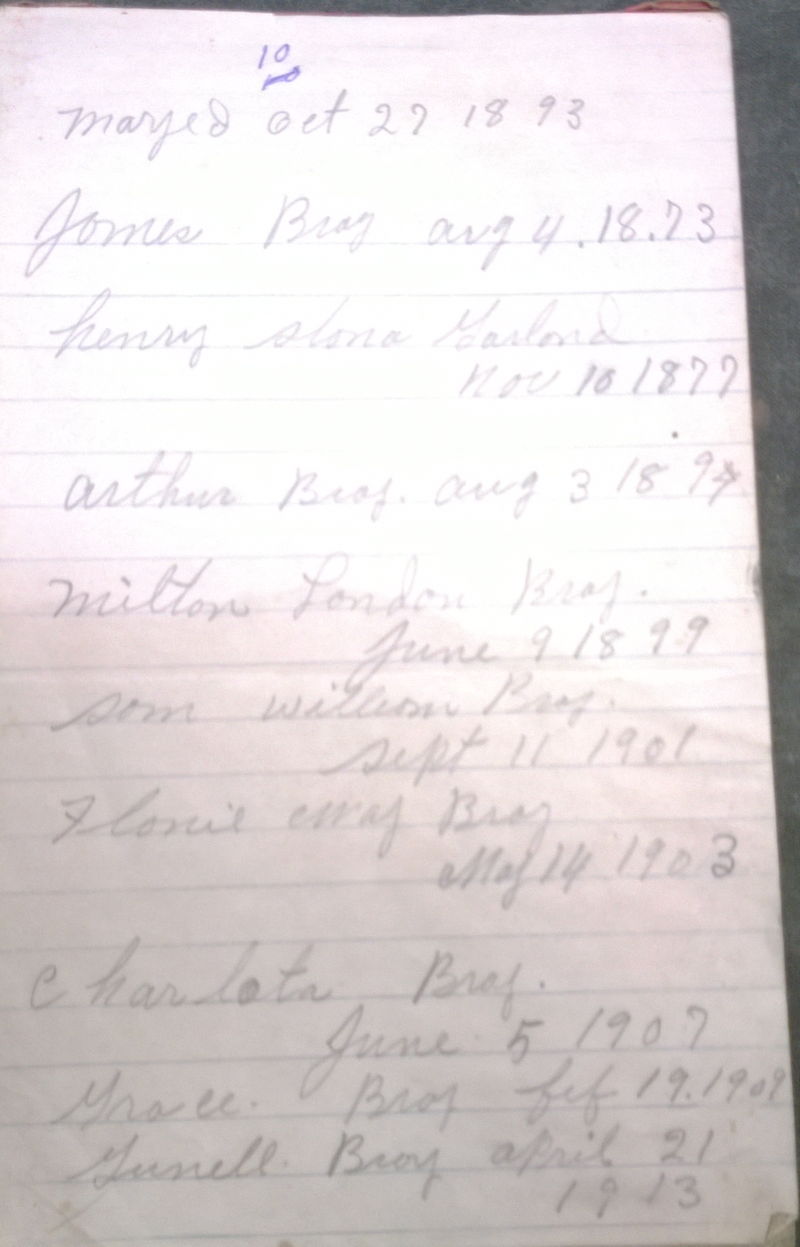 10
maryed oct 27 18 93
Jomes Bray aug 4.18.73
henry slona Garlond
nov 10 1877
arthur Bray. aug 3 18 94
milton London Bray.
June 9 18 99
som william Bray.
sept 11 1901
Flonie may Bray
May 14 1903
Charlota Bray.
June 5 1907
Grace. Bray fef 19.1909
Gunell. Bray april 21
1913